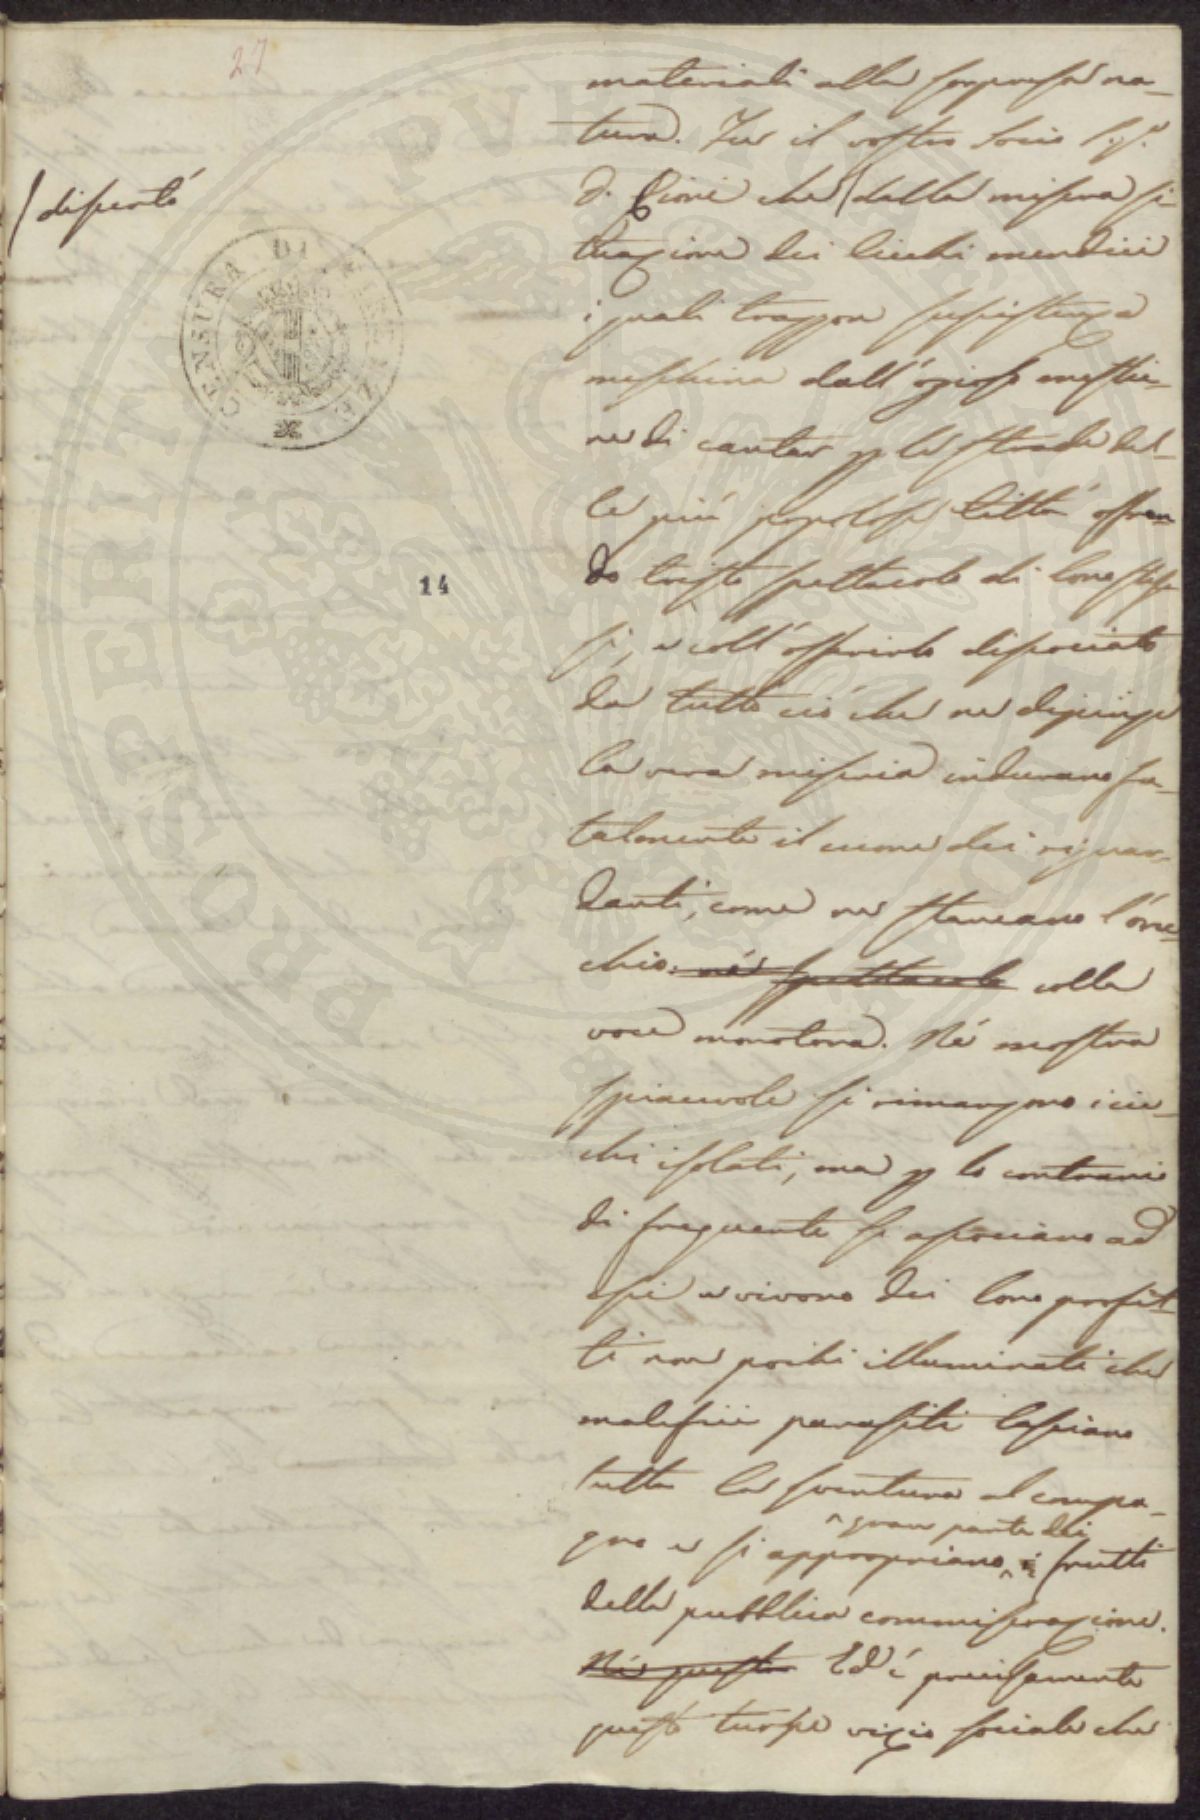 27
materiali alla sorpresa na-
tura. Fu il vostro socio
che / dalla misera si
tuazione dei ciechi mendici
/ disertò
i quali traggon sussistenza
meschina dall'ozioso mestie-
re di cantar p le strade del-
le più popolose città offren
do tristo spettacolo di loro stes
si, e coll'offrirlo dissociato
da tutto ciò che ne dipinge
la vera miseria indurano fa-
talmente il cuore dei riguar-
danti, come ne stancano l'orec-
chio: né spettacolo colla
voce monotona. Né mostra
spiacevole si rimangono i cie-
chi isolati, ma p lo contrario
di frequente si associano ad
essi e vivono dei loro profit-
ti non pochi illuminati che
malefici parasiti lasciano
tutta la sventura al compa-
gno e si appropriano gran parte dei frutti
della pubblica commiserazione.
Né questo Ed è precisamente
questo turpe vizio sociale che
14
CENSURA DI FIRENZE
PROSPERITA PVBLICAE